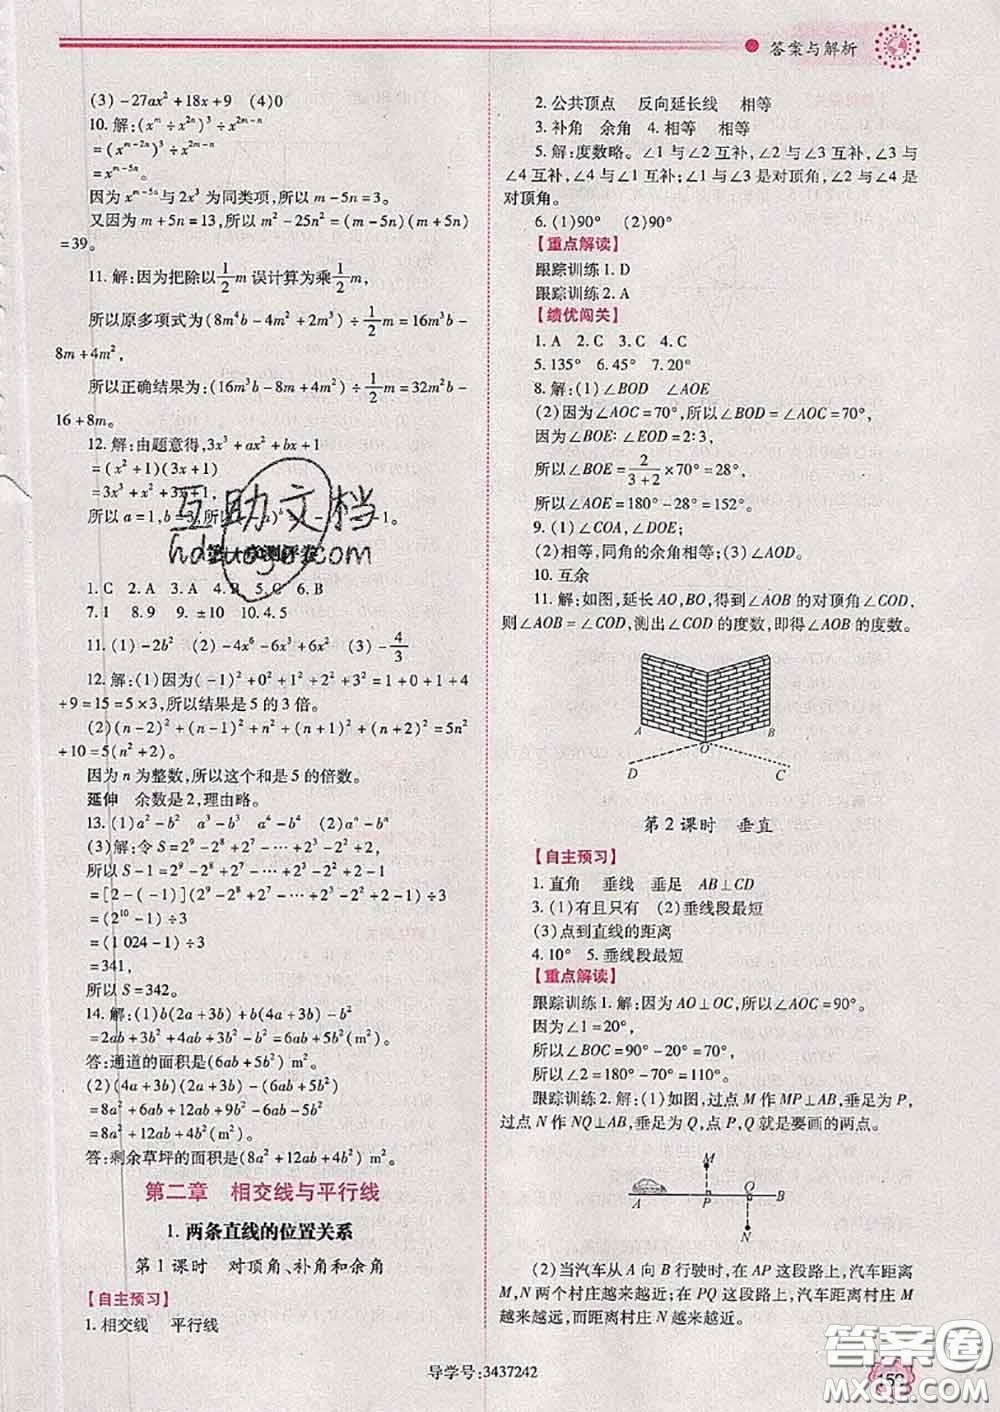 答案与解析
(3) -27ax²+18x+9 (4)0
10. 解:(xᵐ÷x²ⁿ)³÷x²ᵐ⁻ⁿ
=(xᵐ⁻²ⁿ)³÷x²ᵐ⁻ⁿ
=xᵐ⁻⁵ⁿ。
因为xᵐ⁻⁵ⁿ与2x³为同类项,所以m-5n=3。
又因为m+5n=13,所以m²-25n²=(m-5n)(m+5n)
=39。
11. 解:因为把除以1/2 m误计算为乘1/2 m,
所以原多项式为(8m⁴b-4m²+2m³)÷1/2 m=16m³b-
8m+4m²,
所以正确结果为:(16m³b-8m+4m²)÷1/2 m=32m²b
-16+8m。
12. 解:由题意得,3x³+ax²+bx+1
=(x²+1)(3x+1)
=3x³+x²+3x+1,
所以a=1,b=3,所以
互助文档
hdzuoye.com
1. C 2. A 3. A 4. B 5. C 6. B
7. 1 8. 9 9. ±10 10. 4.5
11. (1)-2b² (2)-4x⁶-6x³+6x² (3)-4/3
12. 解:(1)因为(-1)²+0²+1²+2²+3²=1+0+1+4
+9=15=5×3,所以结果是5的3倍。
(2)(n-2)²+(n-1)²+n²+(n+1)²+(n+2)²=5n²
+10=5(n²+2)。
因为n为整数,所以这个和是5的倍数。
延伸 余数是2,理由略。
13. (1)a²-b² a³-b³ a⁴-b⁴ (2)aⁿ-bⁿ
(3)解:令S=2⁹-2⁸+2⁷-…+2³-2²+2,
所以S-1=2⁹-2⁸+2⁷-…+2³-2²+2-1
=[2-(-1)](2⁹-2⁸+2⁷-…+2³-2²+2-1)÷3
=(2¹⁰-1)÷3
=(1 024-1)÷3
=341,
所以S=342。
14. 解:(1)b(2a+3b)+b(4a+3b)-b²
=2ab+3b²+4ab+3b²-b²=6ab+5b²(m²)。
答:通道的面积是(6ab+5b²)m²。
(2)(4a+3b)(2a+3b)-(6ab+5b²)
=8a²+6ab+12ab+9b²-6ab-5b²
=8a²+12ab+4b²(m²)。
答:剩余草坪的面积是(8a²+12ab+4b²) m²。
第二章 相交线与平行线
1. 两条直线的位置关系
第1课时 对顶角、补角和余角
【自主预习】
1. 相交线 平行线
2. 公共顶点 反向延长线 相等
3. 补角 余角 4. 相等 相等
5. 解:度数略。∠1与∠2互补,∠2与∠3互补,∠3与
∠4互补,∠4与∠1互补;∠1与∠3是对顶角,∠2与∠4是
对顶角。
6. (1)90° (2)90°
【重点解读】
跟踪训练1. D
跟踪训练2. A
【绩优闯关】
1. A 2. C 3. C 4. C
5. 135° 6. 45° 7. 20°
8. 解:(1)∠BOD ∠AOE
(2)因为∠AOC=70°,所以∠BOD=∠AOC=70°,
因为∠BOE:∠EOD=2:3,
所以∠BOE=2/(3+2)×70°=28°,
所以∠AOE=180°-28°=152°。
9. (1)∠COA,∠DOE;
(2)相等,同角的余角相等;(3)∠AOD
10. 互余
11. 解:如图,延长AO,BO,得到∠AOB的对顶角∠COD,
则∠AOB=∠COD,测出∠COD的度数,即得∠AOB的度数。
A B
O
D C
第2课时 垂直
【自主预习】
1. 直角 垂线 垂足 AB⊥CD
3. (1)有且只有 (2)垂线段最短
(3)点到直线的距离
4. 10° 5. 垂线段最短
【重点解读】
跟踪训练1. 解:因为AO⊥OC,所以∠AOC=90°。
因为∠1=20°,
所以∠BOC=90°-20°=70°,
所以∠2=180°-70°=110°。
跟踪训练2. 解:(1)如图,过点M作MP⊥AB,垂足为P,
过点N作NQ⊥AB,垂足为Q,点P,Q就是要画的两点。
M
A P Q B
N
(2)当汽车从A向B行驶时,在AP这段路上,汽车距离
M,N两个村庄越来越近;在PQ这段路上,汽车距离村庄M
越来越远,而距离村庄N越来越近。
导学号:3437242
159
答案圈
MXQE.COM